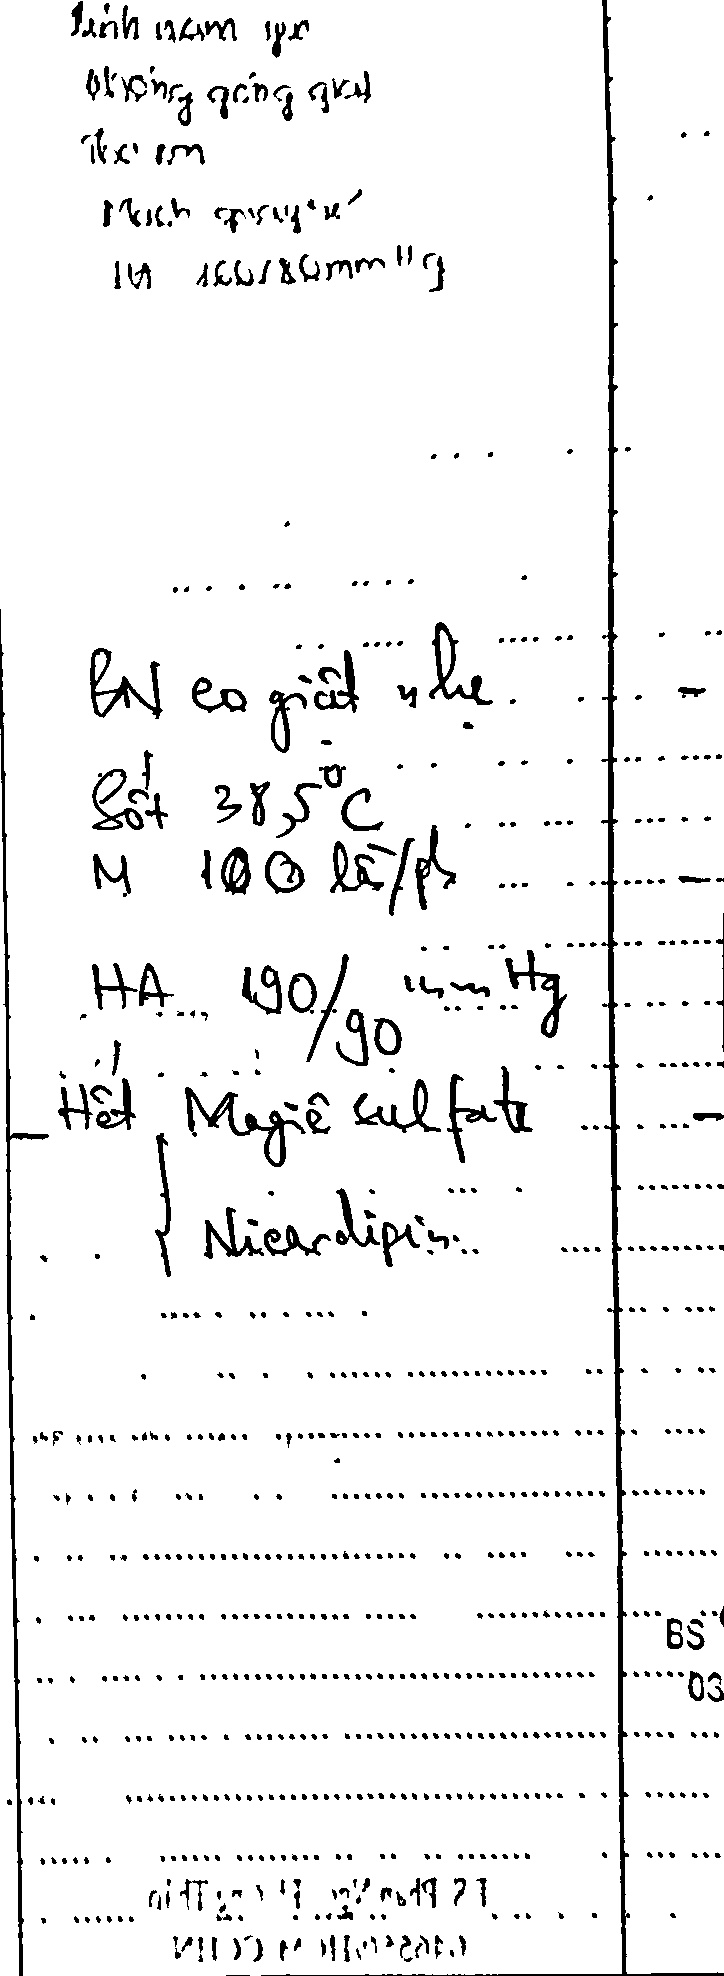 nằm yên
không gồng giật
Thở êm
Mạch quay rõ
mmHg
BN co giật nhẹ.
Sốt 38,5°C
M 100 lần/ph
HA 190/90 mmHg
Hết Magiê sulfate
Nicardipin
BS
03